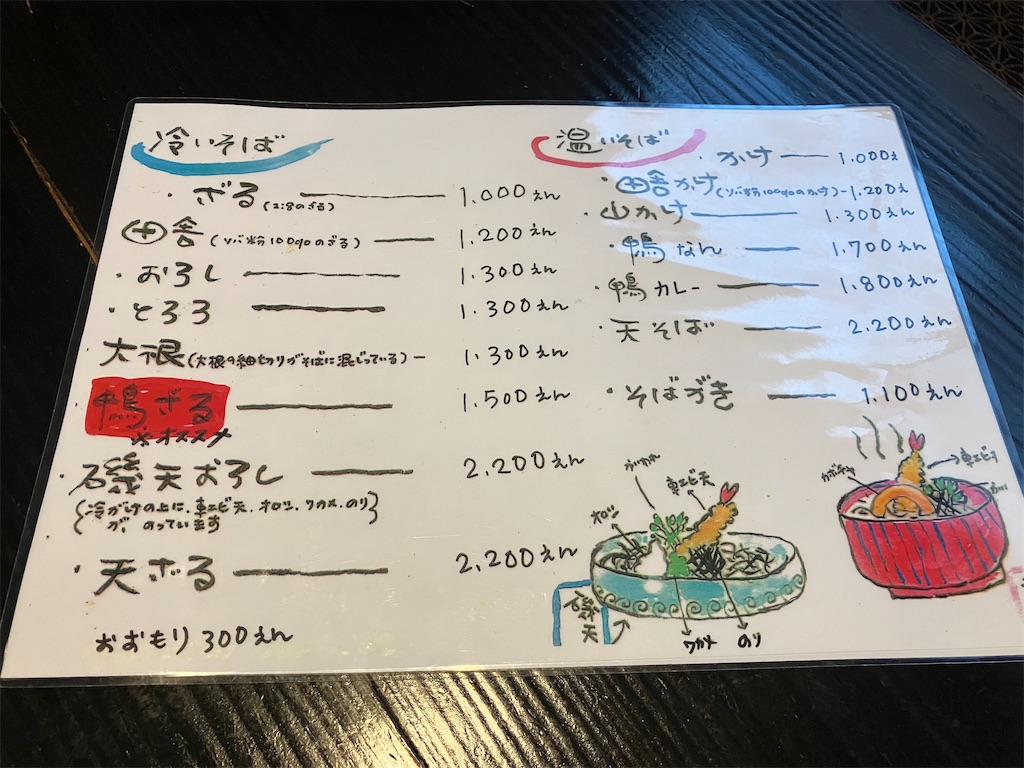 冷いそば
・ざる(2:8のざる) 1.000えん
・田舎(ソバ粉100%のざる) 1.200えん
・おろし 1.300えん
・とろろ 1.300えん
・大根(大根の細切りがそばに混じっている) 1.300えん
・鴨ざる 1.500えん
※オススメ
・磯天おろし 2,200えん
{冷かけの上に、車エビ天、オロシ、ワカメ、のり}
が、のっています
・天ざる 2,200えん
おおもり 300えん
温いそば
・かけ 1.000え
・田舎かけ(ソバ粉100%のかけ) 1.200え
・山かけ 1.300えん
・鴨なん 1.700えん
・鴨カレー 1.800えん
・天そば 2.200えん
・そばがき 1.100えん
オロシ
車エビ天
磯天
ワカメ
のり
カボチャ
車エビ